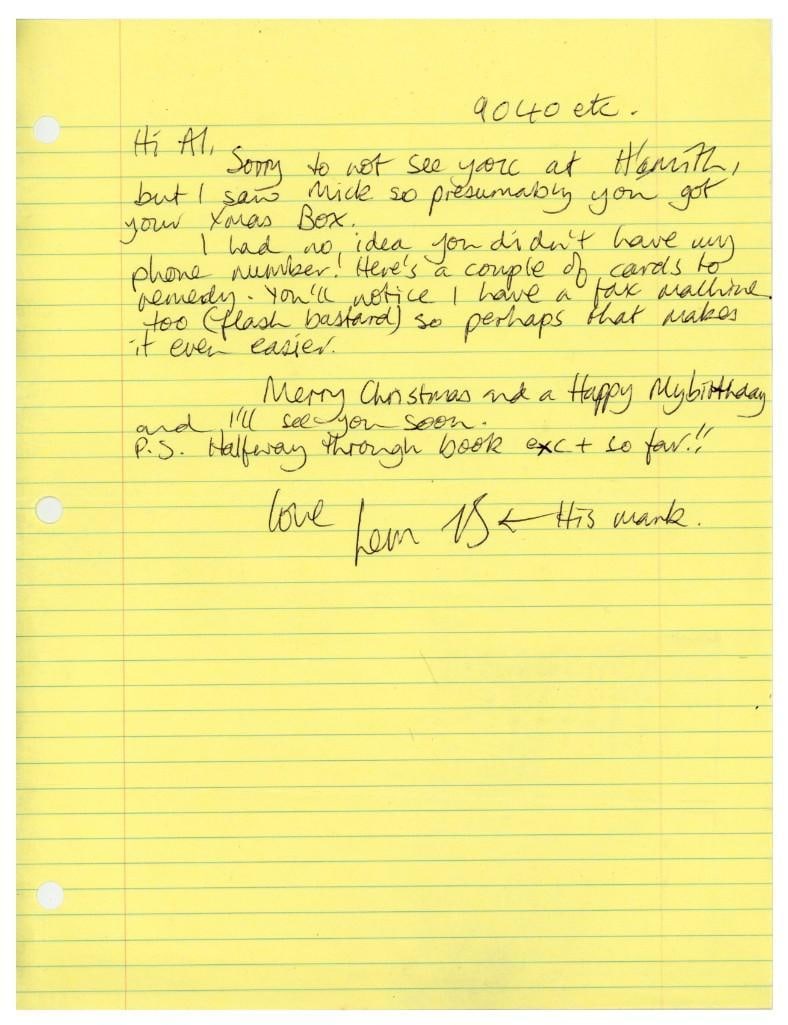 9040 etc.
Hi Al,
Sorry to not see you at H'smith,
but I saw Mick so presumably you got
your Xmas Box.
I had no idea you didn't have my
phone number! Here's a couple of cards to
remedy. You'll notice I have a fax machine
too (flash bastard) so perhaps that makes
it even easier.
Merry Christmas and a Happy Mybirthday
and I'll see you soon.
P.S. Halfway through book exc+ so far!!
love Lem ← His mark.